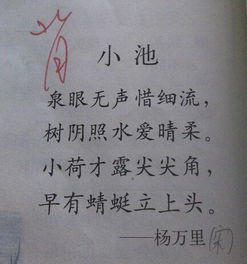 背
小池
泉眼无声惜细流，
树阴照水爱晴柔。
小荷才露尖尖角，
早有蜻蜓立上头。
——杨万里（宋）